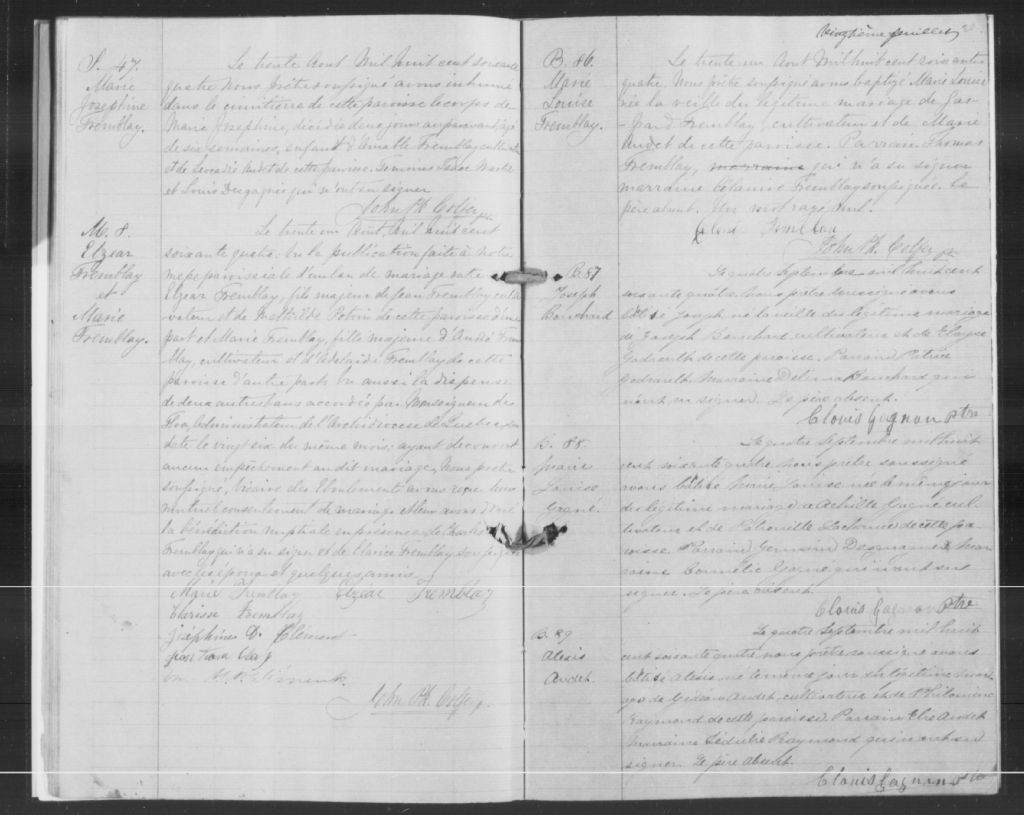 S. 47.
Marie
Josephine
Tremblay.
Le trente Aout Mil huit cent soixante
quatre nous Prêtre soussigné avons inhumé
dans le cimetière de cette paroisse le corps de
Marie Josephine, décédée deux jours auparavant, agé
de six semaines, enfant d'Amable Tremblay
et de Leocadie Audet de cette paroisse. Temoins
et Louis Desgagnés qui n'ont su signer
John Ph. Colfer ptre
M. 8.
Elzear
Tremblay
et
Marie
Tremblay.
Le trente un Aout Mil huit cent
soixante quatre. Vu la publication faite à notre
messe paroissiale d'un ban de mariage entre
Elzear Tremblay, fils majeur de Jean Tremblay
et de Mathilde Potvin de cette paroisse d'une
part et Marie Tremblay, fille majeure d'André Trem
blay, cultivateur et d'Adelaide Tremblay de cette
paroisse d'autre part. Vu aussi la dispense
de deux autres bans accordée par Monseigneur de
Tloa, Administrateur de l'Archidiocèse de Quebec en
date le vingt six du même mois; ayant decouvert
aucun empêchement au dit mariage, Nous prêtre
soussigné, Vicaire des Eboulements avons reçu leur
mutuel consentement de mariage et leur avons donné
la bénédiction nuptiale en présence de
Tremblay qui n'a su signer et de Clarice Tremblay soussignée
avec les époux et quelques amis.
Marie Tremblay Elzear Tremblay
Clarisse tremblay
Joséphine D. Clément
John Ph. Colfer ptre.
Vingtième feuillet
B. 86.
Marie
Louise
Tremblay.
Le trente un Aout Mil huit cent soixante
quatre. Nous prêtre soussigné avons baptisé Marie Louise
née la veille du légitime mariage de Gas-
pard Tremblay, cultivateur et de Marie
Audet de cette paroisse. Parrain Thomas
Tremblay, marraine qui n'a su signer
marraine Tremblay soussignée. Le
père absent. Un mot rayé nul.
Tremblay
John Ph. Colfer ptre
B. 87
Joseph
Bouchard
Le quatre Septembre mil huit cent
soixante quatre nous prêtre soussigné avons
bâtisé Joseph né la veille du légitime mariage
de Joseph Bouchard cultivateur et de
Godreault de cette paroisse. Parrain Patrice
Godreault Marraine Delima Bouchard qui
n'ont su signer. Le père absent.
Clovis Gagnon Ptre
B. 88.
Marie
Louise
Le quatre Septembre mil huit
cent soixante quatre nous prêtre soussigné
avons bâtisé Marie Louise née le même jour
du légitime mariage de Achille Gagné cul-
tivateur et de de cette pa-
roisse Parrain Germain Desgagnés Mar
raine Gagné qui n'ont su
signer. Le père absent.
Clovis Gagnon Ptre
B. 89
Alexis
Audet.
Le quatre Septembre mil huit
cent soixante quatre nous prêtre soussigné avons
bâtisé Alexis né le même jour du légitime maria
ge de Gédéon Audet cultivateur et de Philomène
Raymond de cette paroisse Parrain Elie Audet
Marraine Sédulie Raymond qui n'ont su
signer. Le père absent.
Clovis Gagnon Ptre